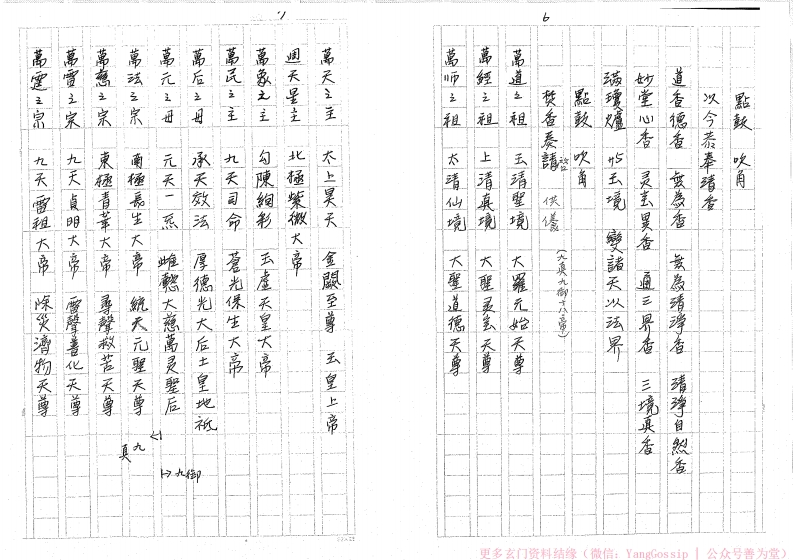 6
點鼓 吹角
以今恭奉清香
道香德香 無為香 無為清淨香 清淨自然香
妙堂心香 灵宝異香 通三界香 三境真香
滿瓊爐 玉境 變諸天以法界
點鼓 吹角
焚香奏請 供儀
(九真九御十八帝)
萬道之祖 玉清聖境 大羅元始天尊
萬經之祖 上清真境 大聖灵宝天尊
萬師之祖 太清仙境 大聖道德天尊
7
萬天之主 太上昊天 金闕至尊 玉皇上帝
週天星主 北極紫微大帝
萬象之主 勾陳絢彩 玉虛天皇大帝
萬民之主 九天司命 蒼光保生大帝
萬后之母 承天效法 厚德光大后土皇地祇
萬元之母 元天一炁 大慈萬灵聖后
萬法之宗 南極長生大帝 統天元聖天尊
萬慈之宗 東極青華大帝 尋聲救苦天尊
萬雷之宗 九天貞明大帝 雷聲普化天尊
萬霆之宗 九天雷祖大帝 除災濟物天尊
九真
九御
更多玄门资料结缘（微信：YangGossip | 公众号善为堂）